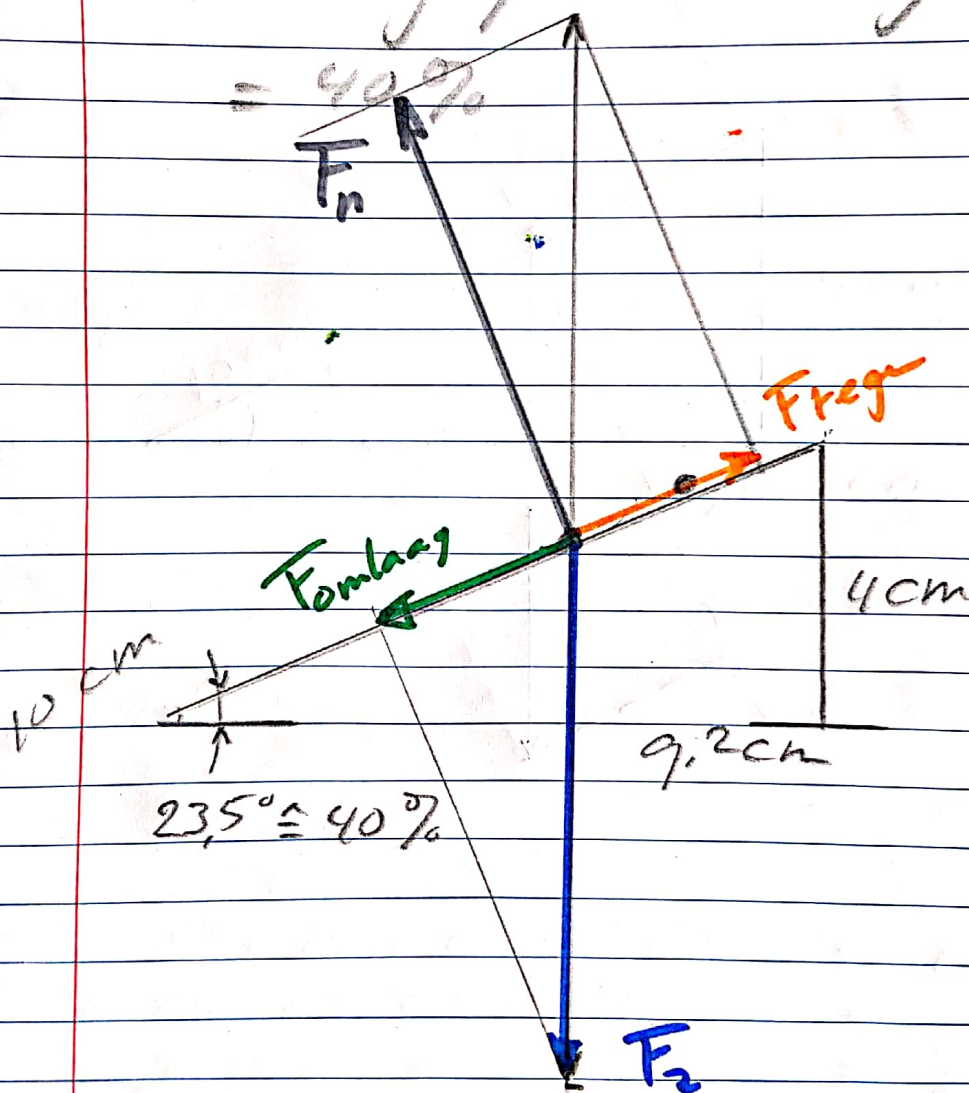 = 40%
Fn
Ftegen
Fomlaag
4cm
10 cm
9,2cm
23,5° ≙ 40%
Fz